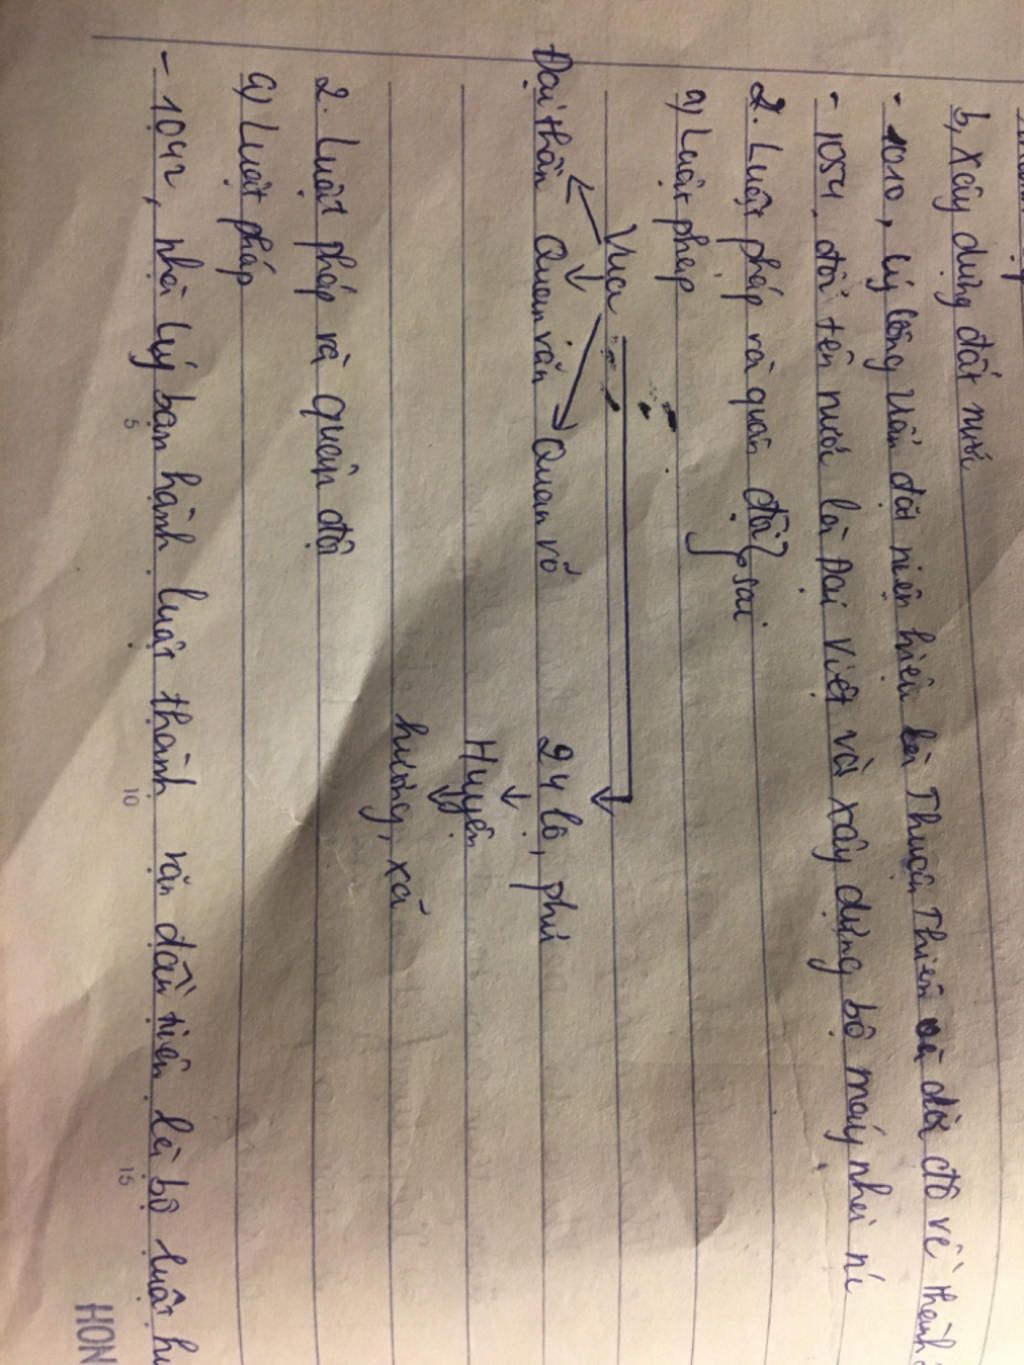 b, xây dựng đất nước
- 1010, Lý Công Uẩn đặt niên hiệu là Thuận Thiên và dời đô về thành
- 1054, đổi tên nước là Đại Việt và xây dựng bộ máy nhà nước
2. Luật pháp và quân đội
a) Luật pháp
sai
Vua
Đại thần Quan văn Quan võ 24 lộ, phủ
Huyện
hương, xã
2. Luật pháp và quân đội
a) Luật pháp
- 1042, nhà Lý ban hành luật thành văn đầu tiên là bộ luật
5 10 15
HON